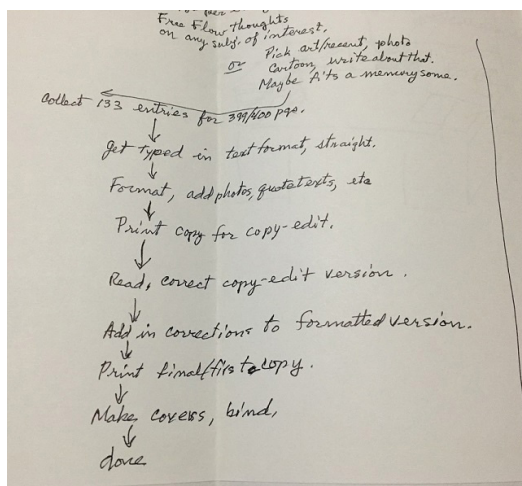 Free Flow thoughts
on any subj. of interest.
or
Pick art/recent, photo
Cartoon, write about that.
Maybe fits a memory some.
Collect 133 entries for 399/400 pgs.
Get typed in text format, straight.
Format, add photos, quotetexts, etc
Print copy for copy-edit.
Read, correct copy-edit version.
Add in corrections to formatted version.
Print final/first copy.
Make covers, bind,
done